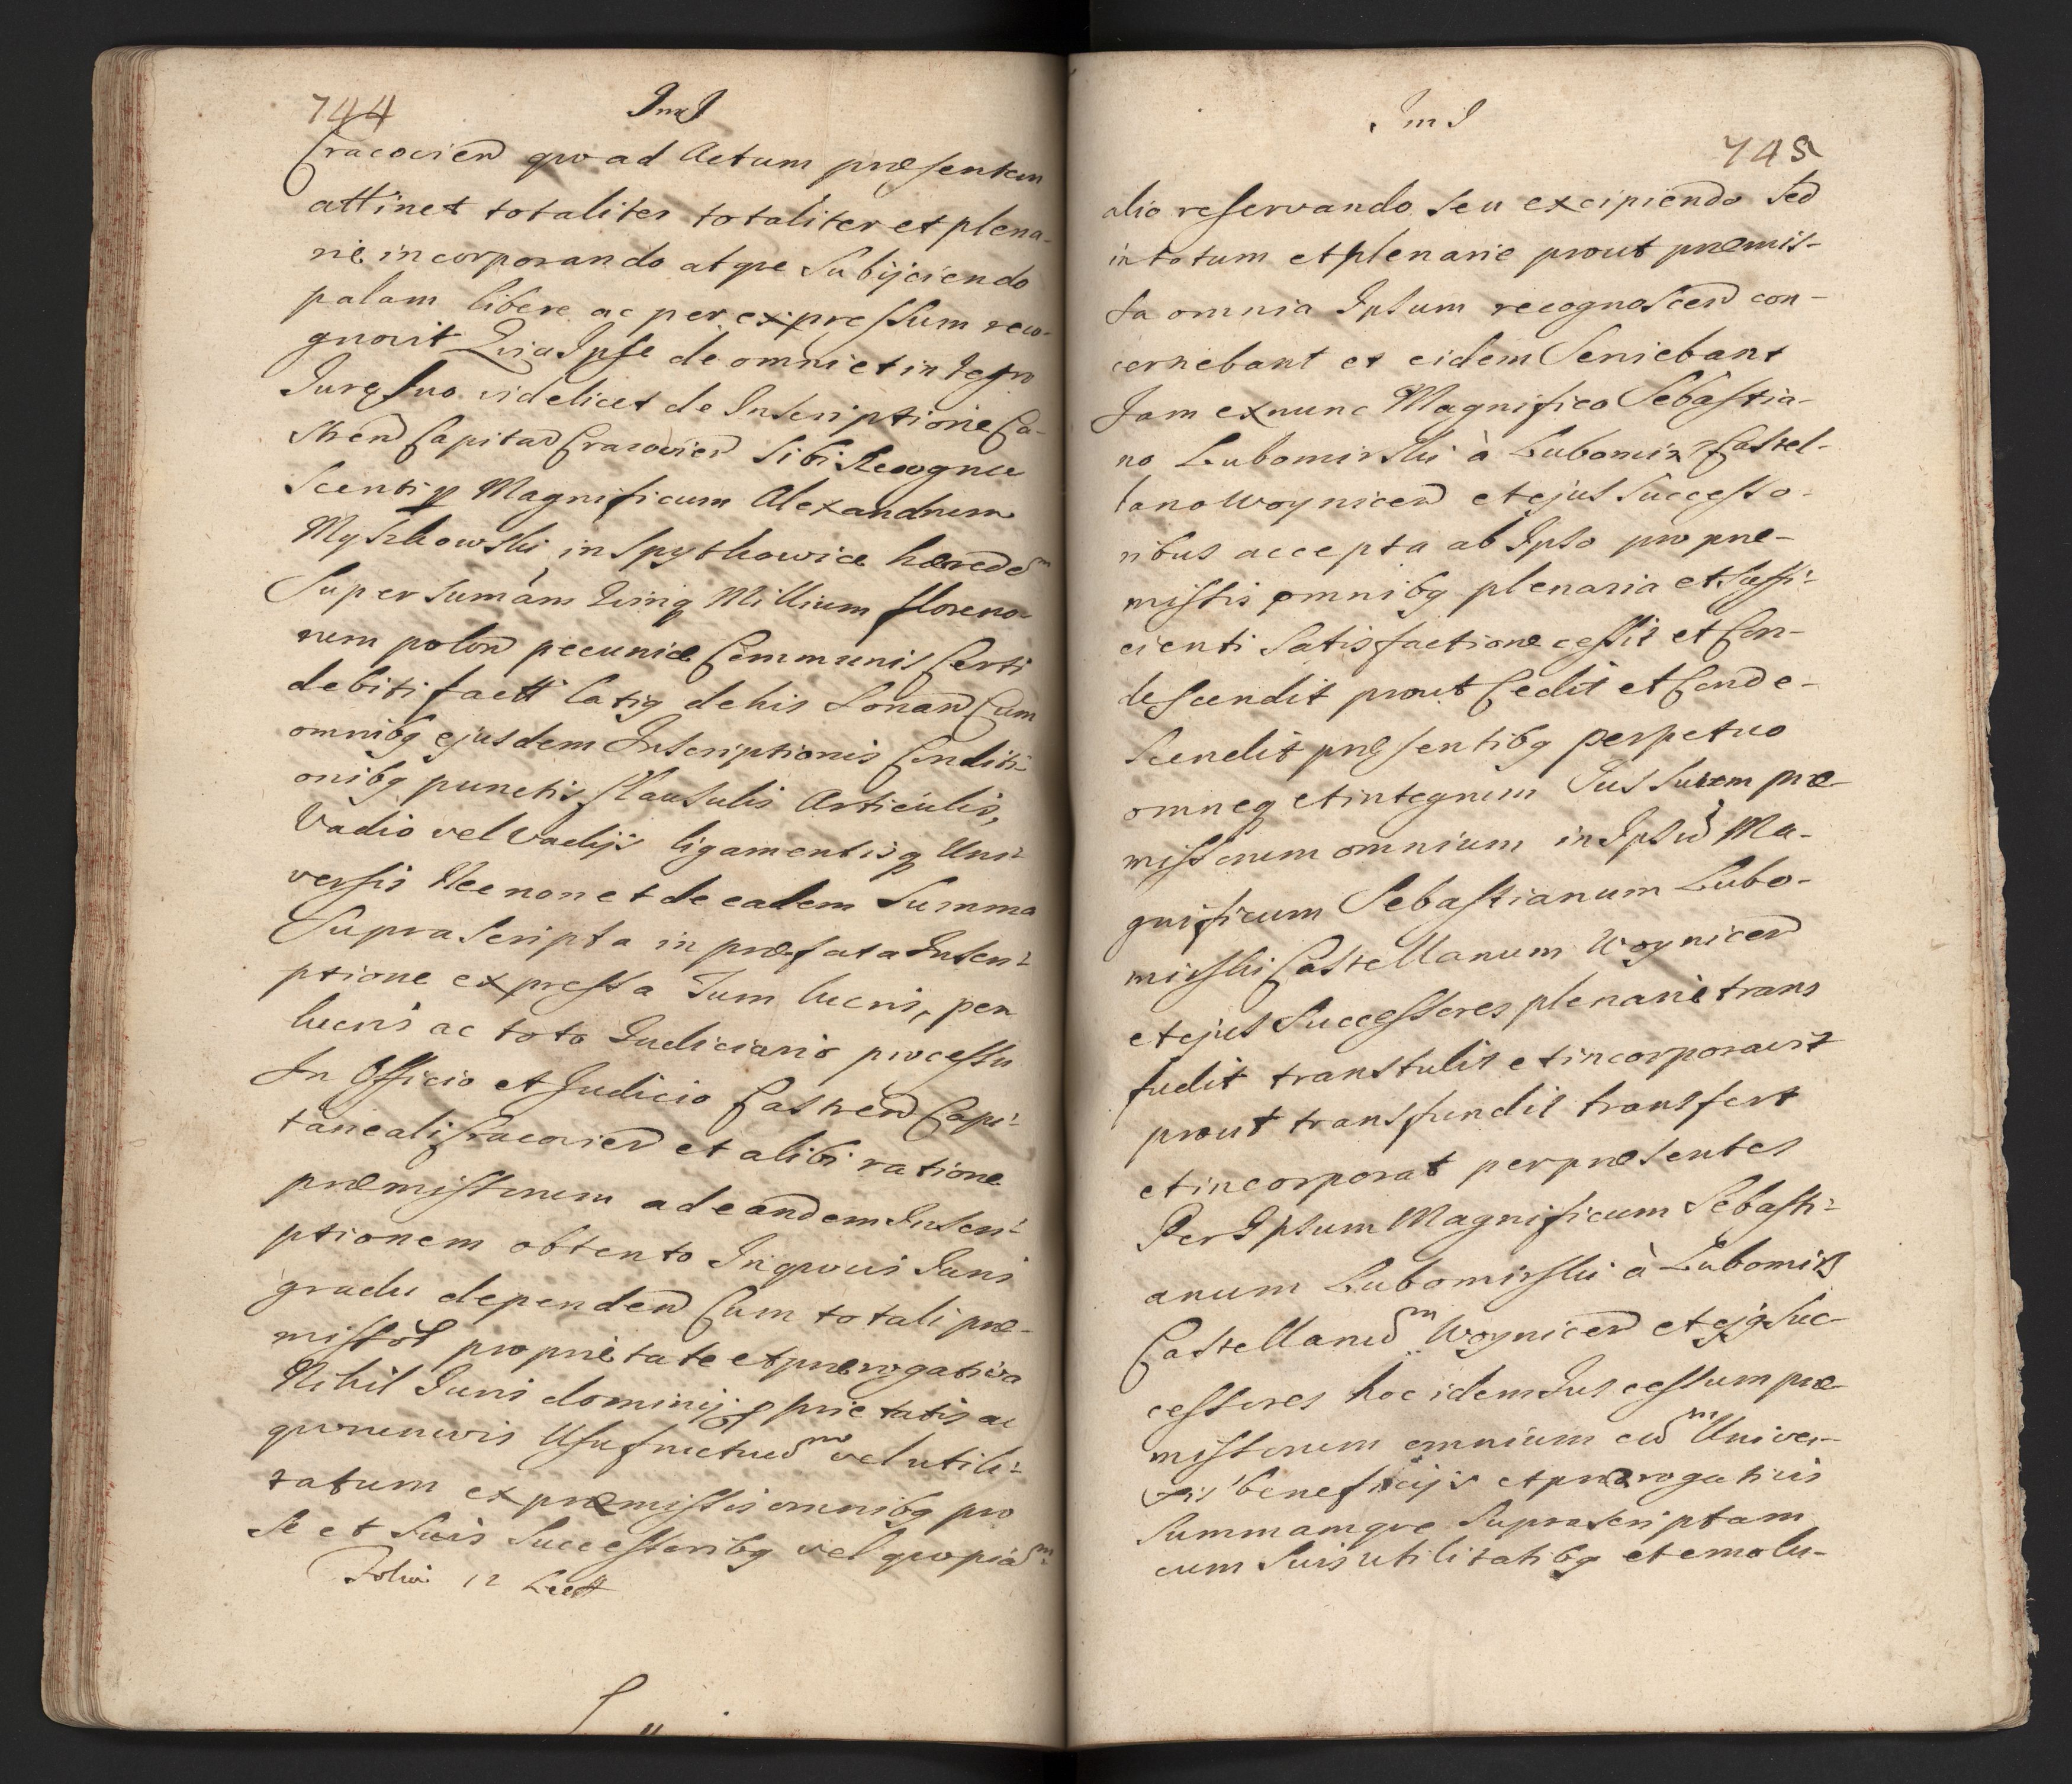 744
ImI
Cracovien quoad Actum præsentem
attinet totaliter totaliter et plena-
rie incorporando atque Subijciendo
palam libere ac per expressum reco-
gnovit Quia Ipse de omni et integro
Jure suo videlicet de Inscriptione Ca-
stren Capitan Cracovien Sibi Recogno
Scentiq Magnificum Alexandrum
Myszkowski in Spytkowice hæred m
Super Sumam Quinq Millium floreno-
rum polon pecuniæ Communis Certi
debiti factt latiq de his Sonan Cum
omnibq ejusdem Inscriptionis Conditi-
onibq punctis Clausulis Articulis,
Vadio vel Vadijs ligamentisq Uni-
versis Nec non et de eadem Summa
Suprascripta in præfata Inscri-
ptione expressa Tum lucris, per
lucris ac toto Judiciario processu
In Officio et Judicio Castren Capi-
taneali Cracovien et alibi ratione
præmissorum ad eandem Inscri-
ptionem obtento In quovis Juris
gradu dependen Cum totali præ-
missor proprietate et prærogativa
Nihil Juris dominij pprietatis ac
quorumvis Usufructuu m vel utili-
tatum ex præmissis omnibq pro
Se et Suis Successoribq vel quopia m
Folia 12
ImI
745
alio reservando Seu excipiendo Sed
in totum et plenarie prout præmis-
sa omnia Ipsum recognoscen con-
cernebant et eidem Serviebant
Jam ex nunc Magnifico Sebastia-
no Lubomirski à Lubomirz Castel-
lano Woynicen et ejus Successo-
ribus accepta ab Ipso pro præ-
missis omnibq plenaria et Suffi-
cienti Satisfactione cessit et Con-
descendit prout Cedit et Conde-
Scendit præsentibq perpetuo
omneq et integrum Jus Suum præ-
missorum omnium in Ipsu Ma-
gnificum Sebastianum Lubo-
mirski Castellanum Woynicen
et ejus Successores plenarie trans
fudit transtulit et incorporavit
prout transfundit transfert
et incorporat per præsentes
Per Ipsum Magnificum Sebasti-
anum Lubomirski à Lubomirz
Castellanu m Woynicen et ejq Suc-
cessores hoc idem Jus cessum præ-
missorum omnium cu m Univer-
sis beneficijs et prærogativis
Summamque Suprascriptam
cum Suis utilitatibq et emolu-